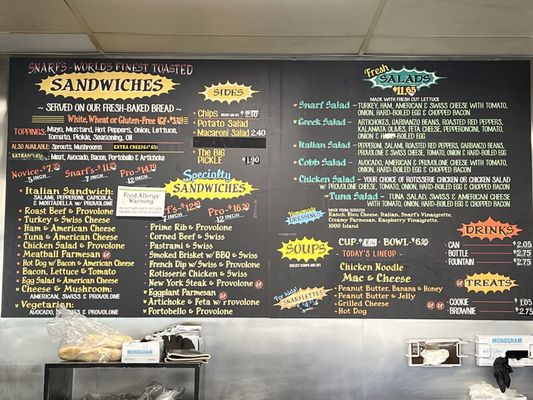 SNARF'S - WORLD'S FINEST TOASTED
SANDWICHES
White, Wheat or Gluten-Free
SERVED ON OUR FRESH-BAKED BREAD
TOPPINGS: Mayo, Mustard, Hot Peppers, Onion, Lettuce,
Tomato, Pickle, Seasoning, Oil
ALSO AVAILABLE: Sprouts, Mushrooms
EXTRA CHEESE
Meat, Avocado, Bacon, Portobello & Artichoke
Novice
Snarf's
Pro
5 INCH
7 INCH
12 INCH
Italian Sandwich:
SALAMI, PEPPERONI, CAPICOLA,
& MORTADELLA W/ PROVOLONE
Roast Beef & Provolone
Turkey & Swiss Cheese
Ham & American Cheese
Tuna & American Cheese
Chicken Salad & Provolone
Meatball Parmesan
Hot Dog w/ Bacon & American Cheese
Bacon, Lettuce & Tomato
Egg Salad & American Cheese
Cheese & Mushroom:
AMERICAN, SWISS & PROVOLONE
Vegetarian:
AVOCADO, SPROUTS & CHEESES
Food Allergy
Warning
SIDES
Chips 2.10
Potato Salad
Macaroni Salad 2.40
THE BIG
PICKLE 1.90
Specialty
SANDWICHES
Prime Rib & Provolone
Corned Beef & Swiss
Pastrami & Swiss
Smoked Brisket w/ BBQ & Swiss
French Dip w/ Swiss & Provolone
Rotisserie Chicken & Swiss
New York Steak & Provolone
Eggplant Parmesan
Artichoke & Feta w/ provolone
Portobello & provolone
Fresh SALADS
MADE WITH FRESH CUT LETTUCE
Snarf Salad - TURKEY, HAM, AMERICAN & SWISS CHEESE WITH TOMATO,
ONION, HARD-BOILED EGG & CHOPPED BACON
Greek Salad - ARTICHOKES, GARBANZO BEANS, ROASTED RED PEPPERS,
KALAMATA OLIVES, FETA CHEESE, PEPPERONCINI, TOMATO,
ONION & HARD-BOILED EGG
Italian Salad - PEPPERONI, SALAMI, ROASTED RED PEPPERS, GARBANZO BEANS,
PROVOLONE & SWISS CHEESE, TOMATO, ONION & HARD-BOILED EGG
Cobb Salad - AVOCADO, AMERICAN & PROVOLONE CHEESE WITH TOMATO,
ONION, HARD-BOILED EGG & CHOPPED BACON
Chicken Salad - YOUR CHOICE OF ROTISSERIE CHICKEN OR CHICKEN SALAD
W/ PROVOLONE CHEESE, TOMATO, ONION, HARD-BOILED EGG & CHOPPED BACON
Tuna Salad - TUNA SALAD, SWISS & AMERICAN CHEESE
WITH TOMATO, ONION, HARD-BOILED EGG & CHOPPED BACON
DRESSING
MADE FROM SCRATCH
Ranch, Bleu Cheese, Italian, Snarf's Vinaigrette,
Creamy Parmesan, Raspberry Vinaigrette,
1000 Island
SOUPS
CUP BOWL
TODAY'S LINEUP
Chicken Noodle
Mac & Cheese
SNARFLETTE'S
Peanut Butter, Banana & Honey
Peanut Butter & Jelly
Grilled Cheese
Hot Dog
DRINKS
CAN $2.05
BOTTLE $2.75
FOUNTAIN $2.75
TREATS
COOKIE $1.05
BROWNIE $2.75
MONOGRAM
MONOGRAM